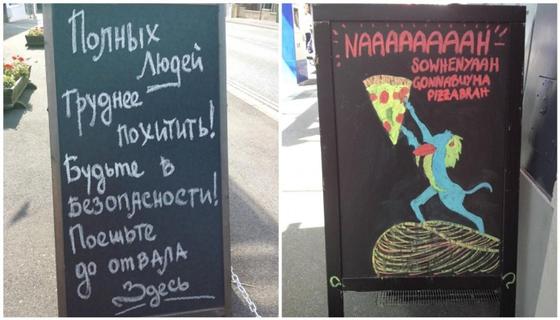 Полных
Людей
Труднее
похитить!
Будьте в
Безопасности!
Поешьте
до отвала
Здесь
NAAAAAAAAAH-
SOWHENYAAH
GONNABUYMA
PIZZABRAH